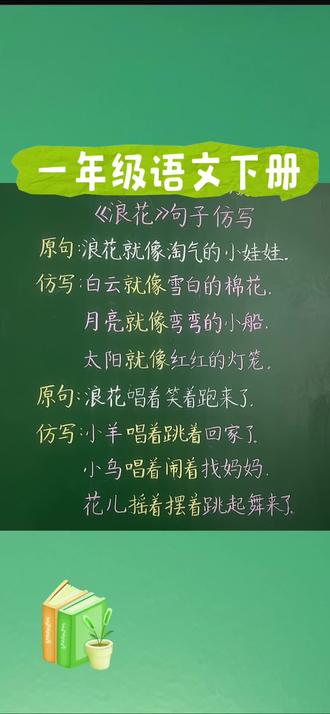 一年级语文下册
《浪花》句子仿写
原句:浪花就像淘气的小娃娃.
仿写:白云就像雪白的棉花.
月亮就像弯弯的小船.
太阳就像红红的灯笼.
原句:浪花唱着笑着跑来了.
仿写:小羊唱着跳着回家了.
小鸟唱着闹着找妈妈.
花儿摇着摆着跳起舞来了.